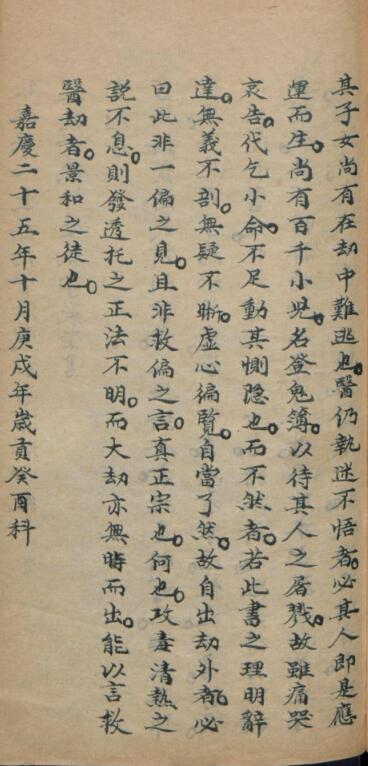 其子女尚有在劫中難逃也醫仍執迷不悟者必其人即是應
運而生尚有百千小児名登鬼簿以待其人之屠戮故雖痛哭
哀告代乞小命不足動其惻隐也而不然者若此書之理明辭
達無義不剖無疑不晰虛心徧覽自當了然故自出劫外者必
曰此非一偏之見且非救偏之言真正宗也何也攻毒清熱之
說不息則發透托之正法不明而大劫亦無時而出能以言救
醫劫者景和之徒也
嘉慶二十五年十月庚戌年歲貢癸酉科